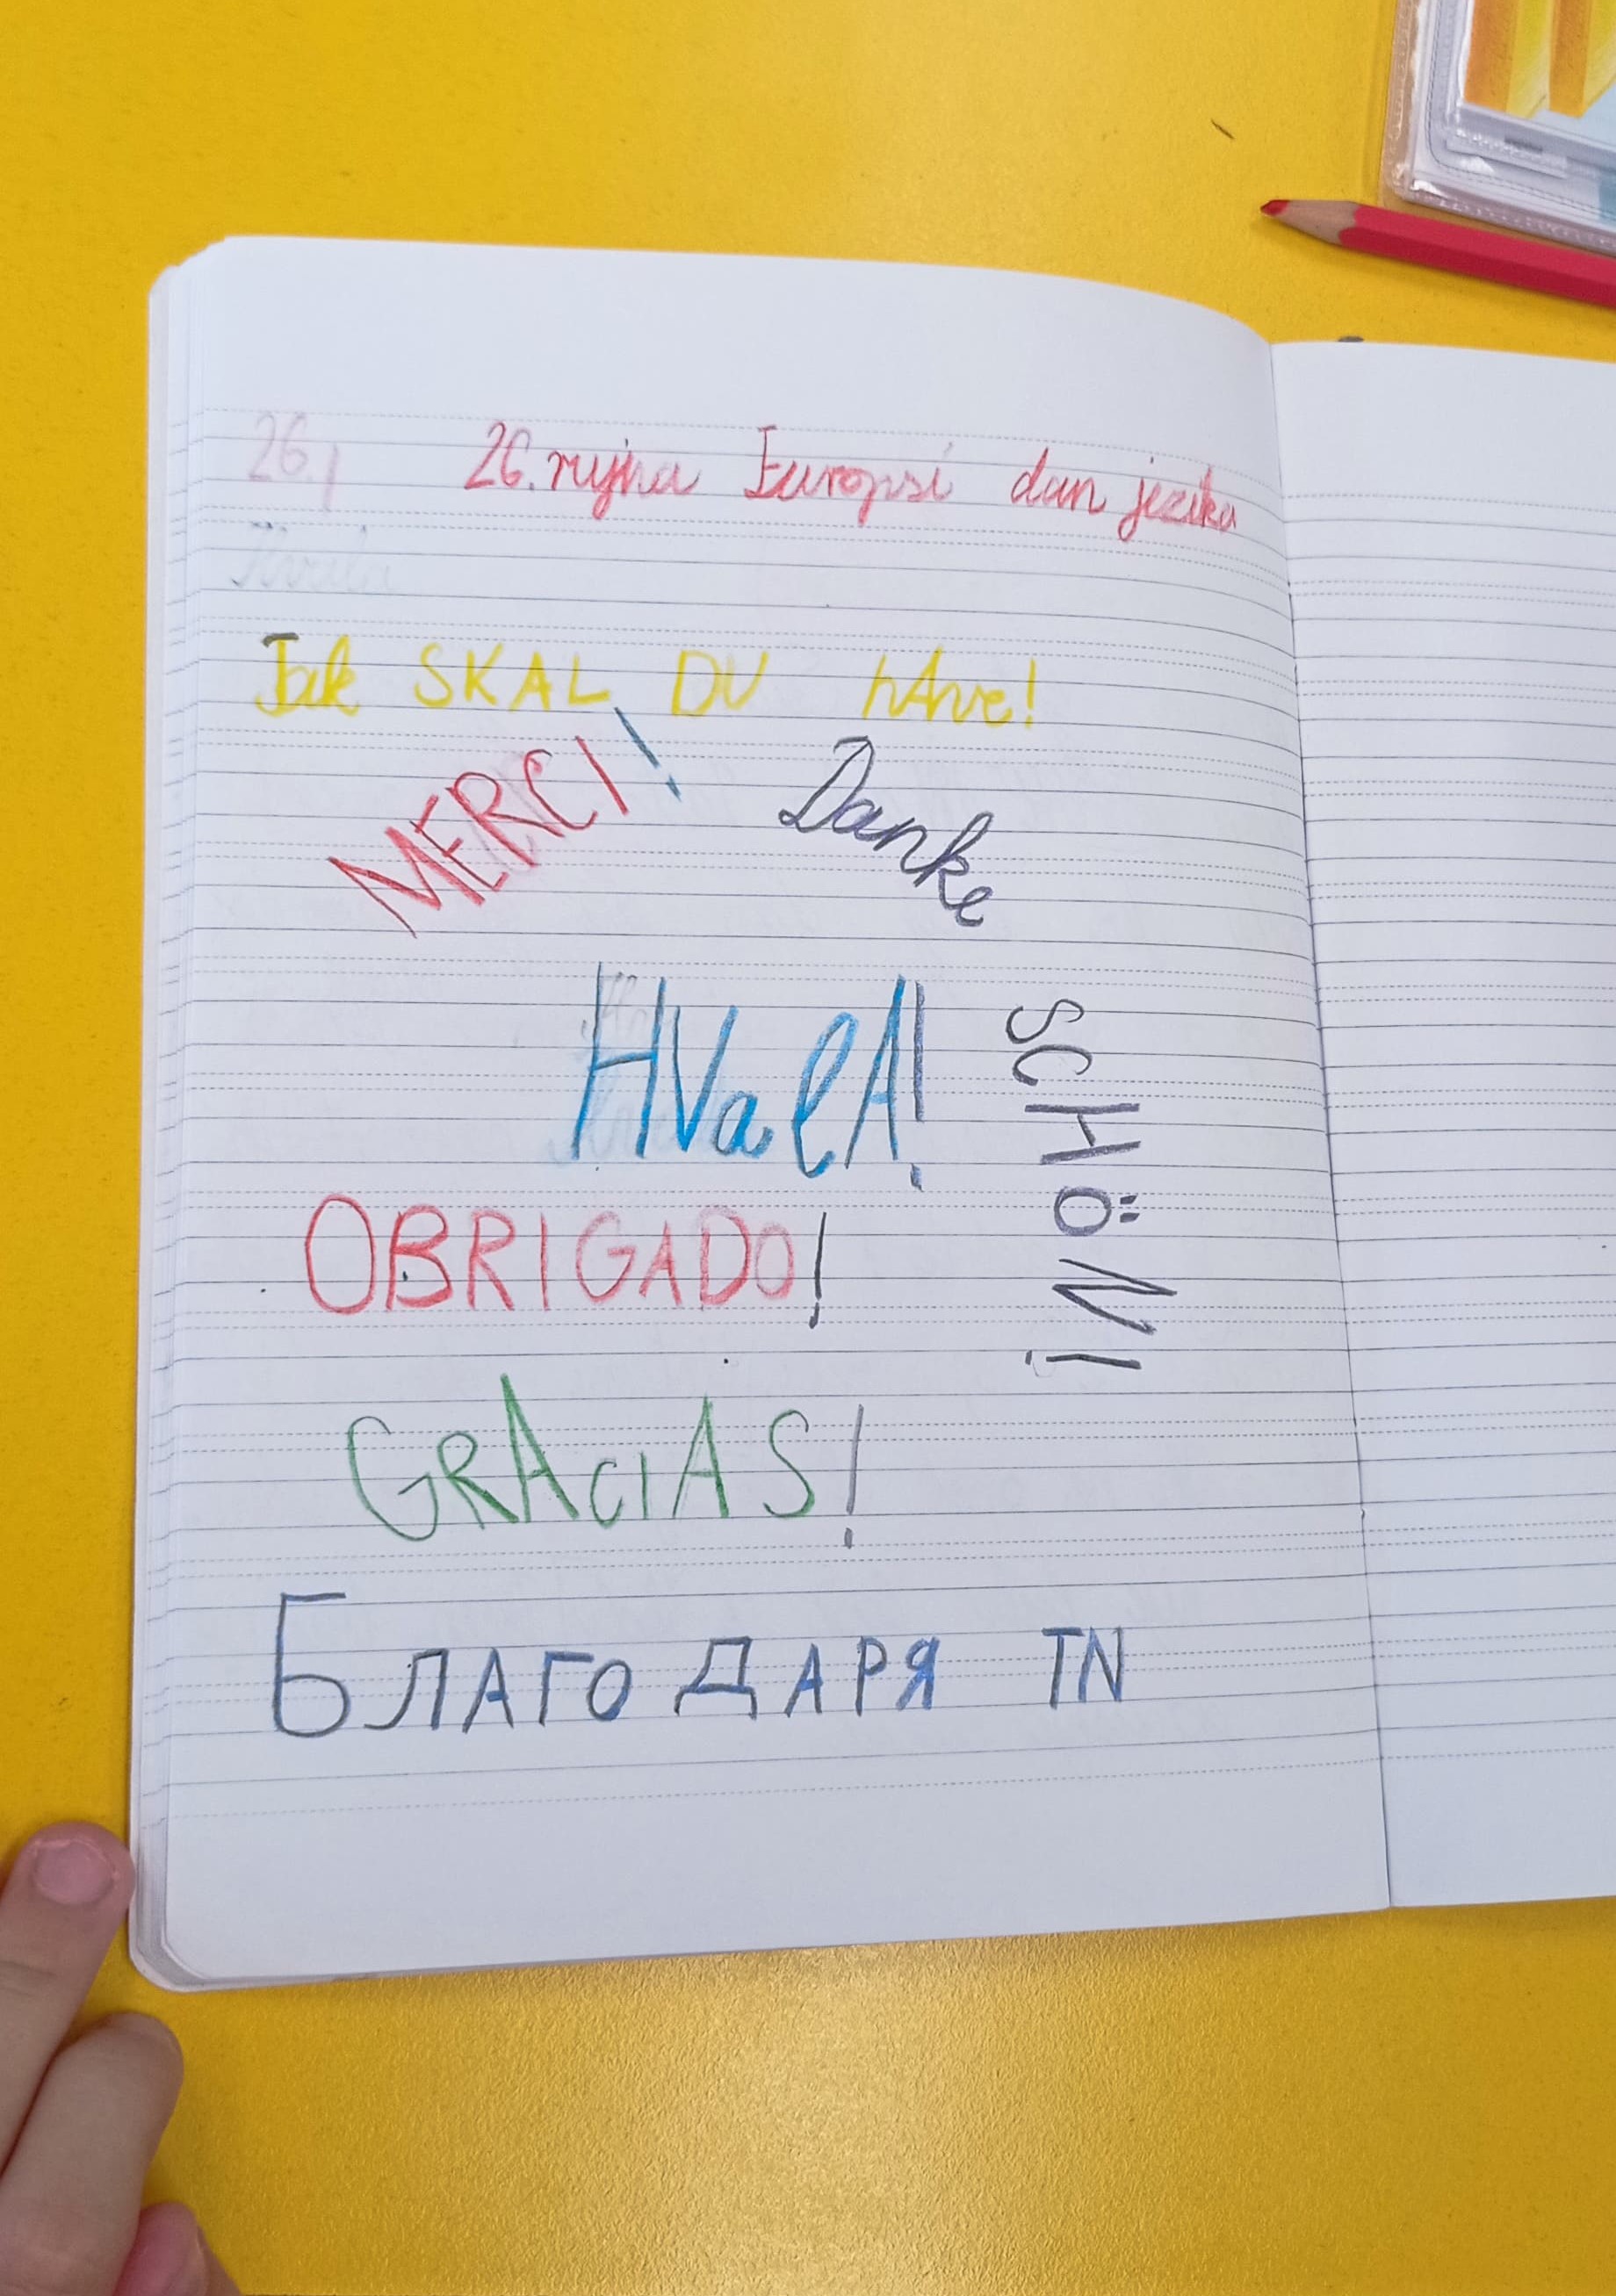 26.
26. rujna Europsi dan jezika
Hvala
Tak SKAL DU hAve!
MERCI!
Danke
SCHÖN!
HValA!
OBRIGADO!
GRAciAS!
БЛАГОДАРЯ TN